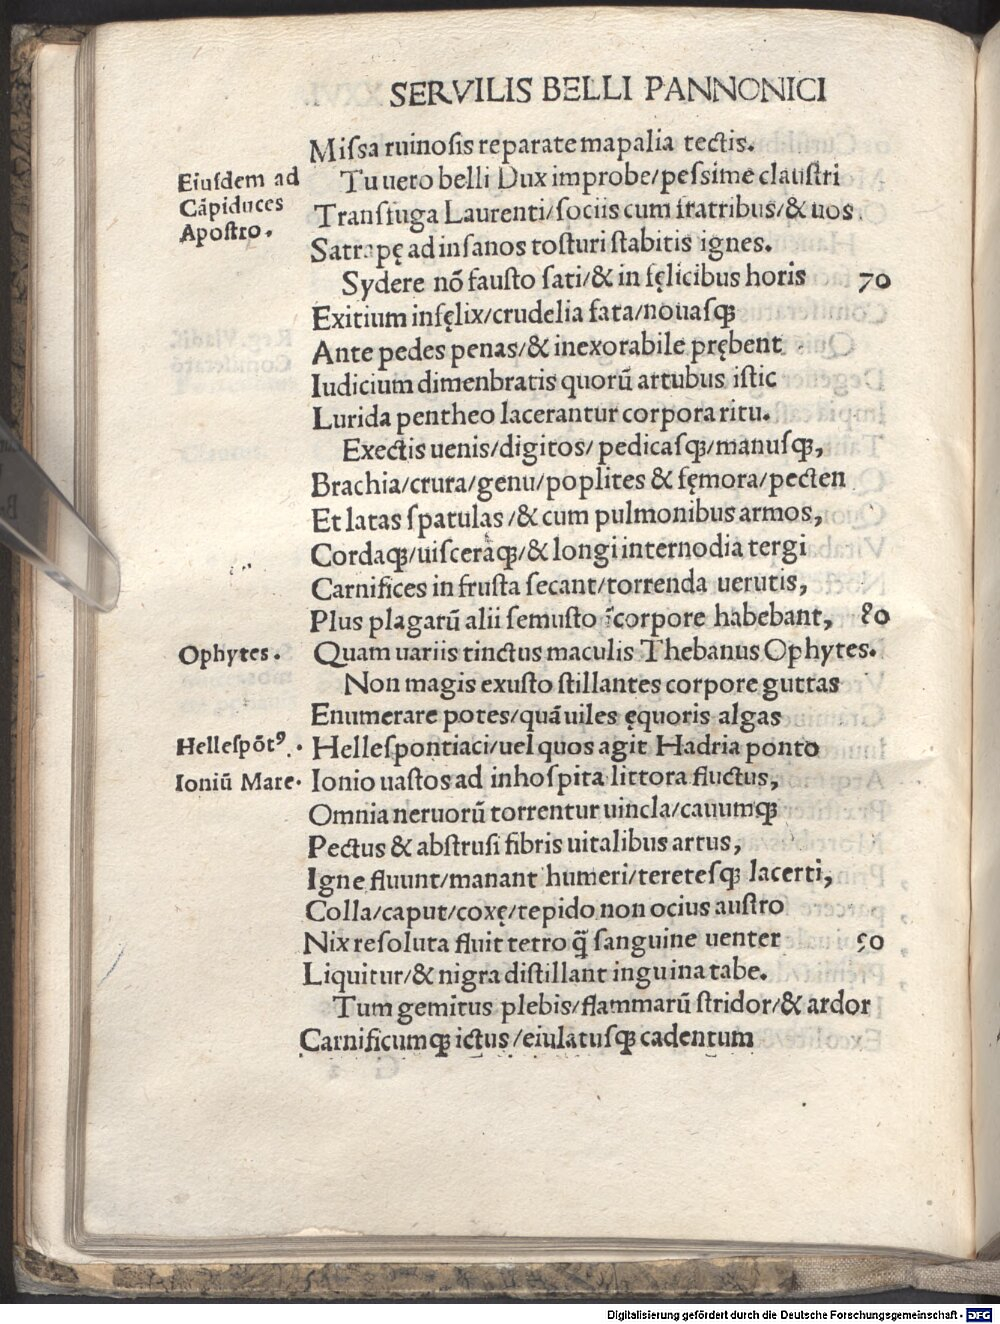 SERVILIS BELLI PANNONICI
Missa ruinosis reparate mapalia tectis.
Eiusdem ad
Cāpiduces
Apostro.
Tu uero belli Dux improbe/pessime claustri
Transfuga Laurenti/sociis cum fratribus/& uos.
Satrapę ad insanos tosturi stabitis ignes.
Sydere nō fausto sati/& in fęlicibus horis 70
Exitium infęlix/crudelia fata/nouasqꝫ
Ante pedes penas/& inexorabile prębent
Iudicium dimenbratis quorū artubus istic
Lurida pentheo lacerantur corpora ritu.
Exectis uenis/digitos/pedicasqꝫ/manusqꝫ,
Brachia/crura/genu/poplites & fęmora/pecten
Et latas spatulas/& cum pulmonibus armos,
Cordaqꝫ/uisceraqꝫ/& longi internodia tergi
Carnifices in frusta secant/torrenda uerutis,
Plus plagarū alii semusto ī corpore habebant, 80
Ophytes. Quam uariis tinctus maculis Thebanus Ophytes.
Non magis exusto stillantes corpore guttas
Enumerare potes/quā uiles ęquoris algas
Hellespōtꝰ. Hellespontiaci/uel quos agit Hadria ponto
Ioniū Mare. Ionio uastos ad inhospita littora fluctus,
Omnia neruorū torrentur uincla/cauumqꝫ
Pectus & abstrusi fibris uitalibus artus,
Igne fluunt/manant humeri/teretesqꝫ lacerti,
Colla/caput/coxę/tepido non ocius austro
Nix resoluta fluit tetro q̄ sanguine uenter 90
Liquitur/& nigra distillant inguina tabe.
Tum gemitus plebis/flammarū stridor/& ardor
Carnificumqꝫ ictus/eiulatusqꝫ cadentum
Digitalisierung gefördert durch die Deutsche Forschungsgemeinschaft - DFG